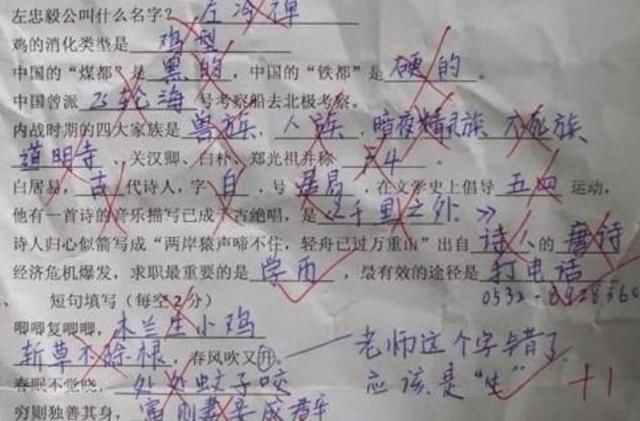 左忠毅公叫什么名字？左冷禅
鸡的消化类型是 鸡型
中国的“煤都”是 黑的，中国的“铁都”是 硬的。
中国曾派 飞轮海 号考察船去北极考察。
内战时期的四大家族是 兽族、人族、暗夜精灵族、不死族、
道明寺、关汉卿、白朴、郑光祖并称 F4。
白居易，古代诗人，字 白，号 居易，在文学史上倡导 五四 运动，
他有一首诗的音乐描写已成千古绝唱，是《千里之外》
诗人归心似箭写成“两岸猿声啼不住，轻舟已过万重山”出自 诗人的 唐诗
经济危机爆发，求职最重要的是 学历，最有效的途径是 打电话
0532-
短句填写（每空2分）
唧唧复唧唧，木兰生小鸡
斩草不除根，春风吹又升。 老师这个字错了
春眠不觉晓，处处蚊子咬 应该是“生” +1
穷则独善其身，富则妻妾成群